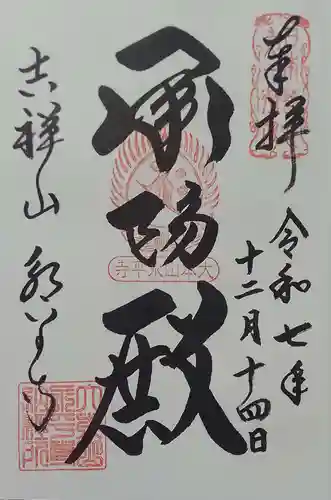 奉拝
令和七年
十二月十四日
承陽殿
大本山永平寺
吉祥山 永平寺